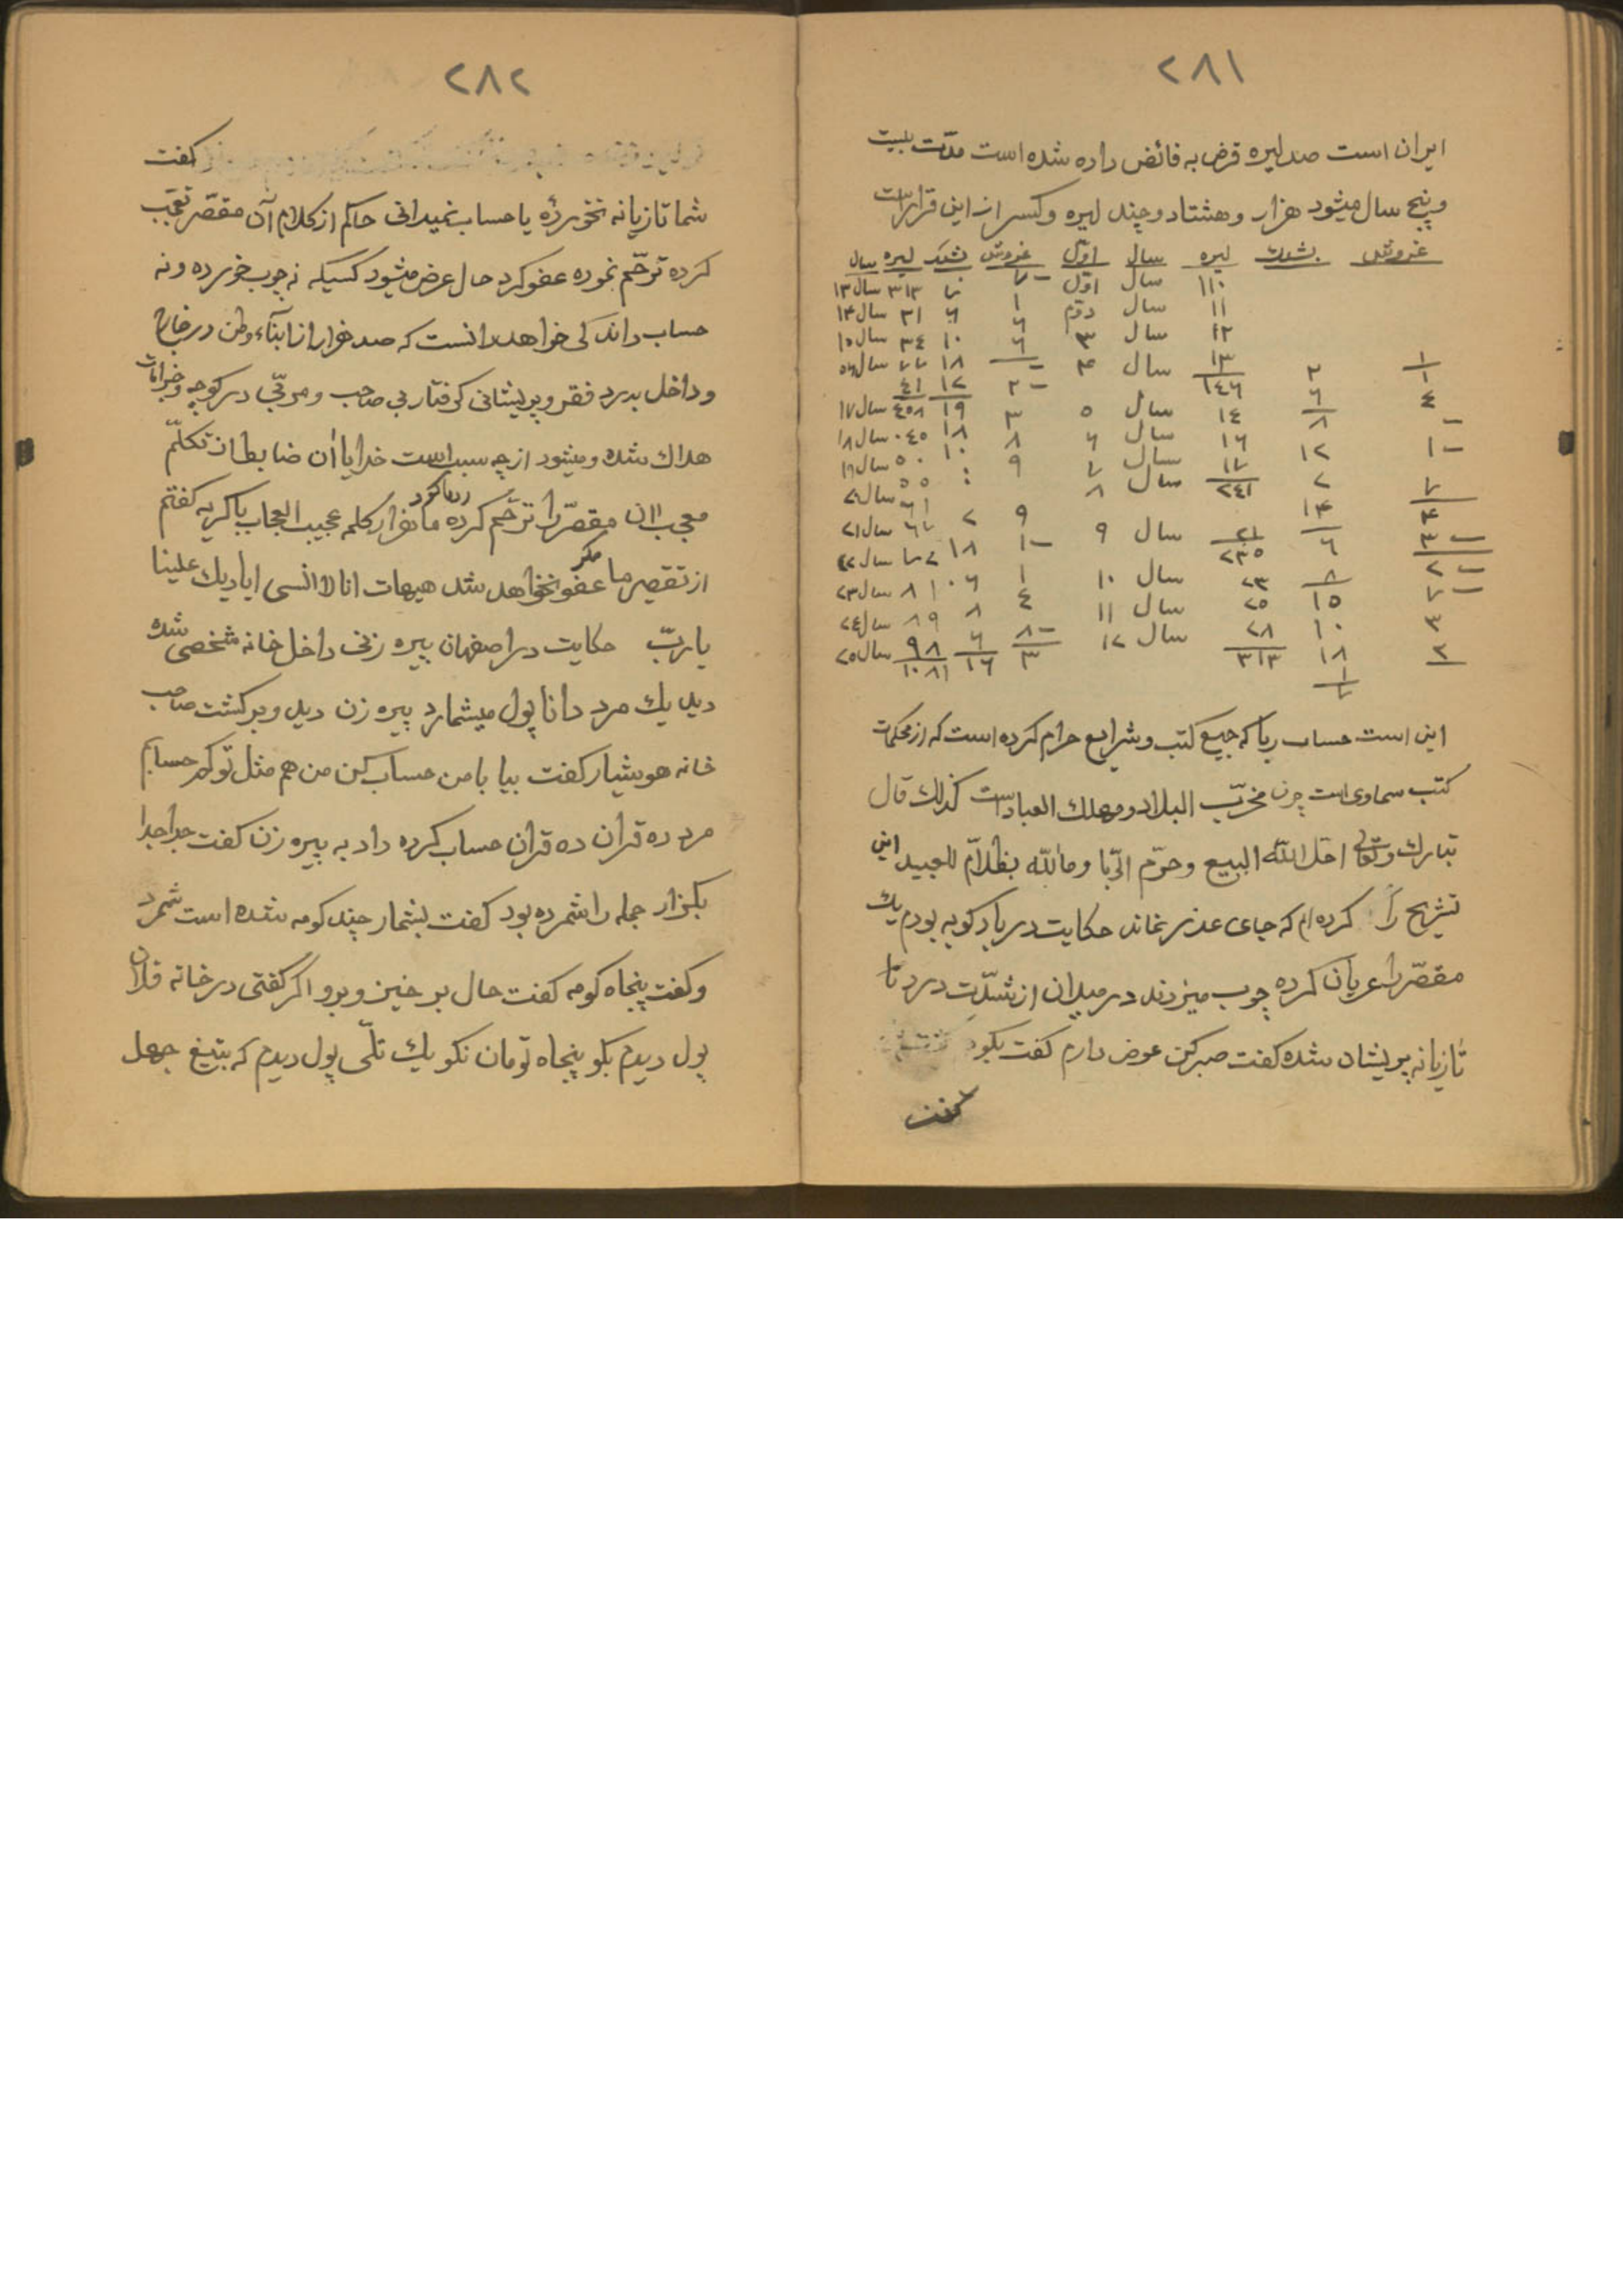 ۲۸۱
ایران است صد لیره قرض به فائض داده شده است مدّت بیست
و پنج سال میشود هزار و هشتاد و چند لیره و کسر از این قرار است
غروش بشلک لیره سال اوّل غروش بشلک لیره سال
۱۱۰ سال اوّل ۳۱۳ سال ۱۳
۱۱ سال دوّم ۱ ۶ ۳۱ سال ۱۴
۱۲ سال ۳ ۶ ۱۰ ۳٤ سال ۱۵
۱۳ سال ۴ ۱۸
۱٤٦ ۱۲ ٤۱
۱٤ سال ۵ ۳ ۱۹ ٤۵۸ سال ۱۷
۱٦ سال ۶ ۸ ۱۸ ٤۵ سال ۱۸
۱۷ سال ۷ ۹ ۱۰ ۵۰ سال ۱۹
سال ۸ ۵۵ سال ۲۰
سال ۹ ۹ ۲ ۶۱
۲۳۵ ۱۸ سال ۲۲
۱۵ ۲۳ سال ۱۰ ۱ ۸۱ سال ۲۳
۳ ۱۰ ۲۵ سال ۱۱ ٤ ۸ ۸۹ سال ۲٤
۱۸ ۲۸ سال ۱۲ ۶ ۹۸ سال ۲۵
۳۱۳ ۳ ۱٦ ۱۰۸۱
این است حساب ربا که جمیع کتب و شرایع حرام کرده است که از محکمات
کتب سماوی است چون مخرّب البلاد و مهلك العباد است کذلك قال
تبارك وتعالی احلّ الله البیع وحرّم الرّبا وما الله بظلاّم للعبید این
تشریح را کرده ام که جای عذر نماند حکایت در بادکوبه بودم یك
مقصّر را عریان کرده چوب میزدند در میدان از شدّت درد تا
تازیانه پریشان شده گفت صبر کن عرض دارم گفت بگو
گفت
۲۸۲
گفت
شما تازیانه نخورده یا حساب نمیدانی حاکم از کلام آن مقصّر تعجّب
کرده ترحّم نموده عفو کرد حال عرض میشود کسیکه نه چوب خورده و نه
حساب داند کی خواهد دانست که صد هزار از ابناء وطن در خارج
و داخل بدرد فقر و پریشانی گرفتار بی صاحب و مربّی در کوچه و خرابات
هلاك شده و میشود از چه سبب است خدایا آن ضابط از تکلّم
معجب آن مقصّر را ترحّم کرده رها کرد ما هزار کلمه عجیب العجاب با گریه گفتم
از تقصیر ما مگر عفو نخواهد شد هیهات انا لا انسی ایادیك علینا
یا ربّ حکایت در اصفهان پیره زنی داخل خانه شخصی شده
دید یك مرد دانا پول میشمارد پیره زن دید و برگشت صاحب
خانه هوشیار گفت بیا با من حساب کن من هم مثل تو کم حسابم
مرد ده قران ده قران حساب کرده داد به پیره زن گفت جدا جدا
بگزار جمله را شمرده بود گفت بشمار چند کومه شده است شمرد
و گفت پنجاه کومه گفت حال بر خیز و برو اگر گفتی در خانه فلان
پول دیدم بگو پنجاه تومان نگو یك تلّی پول دیدم که بتیغ جهل